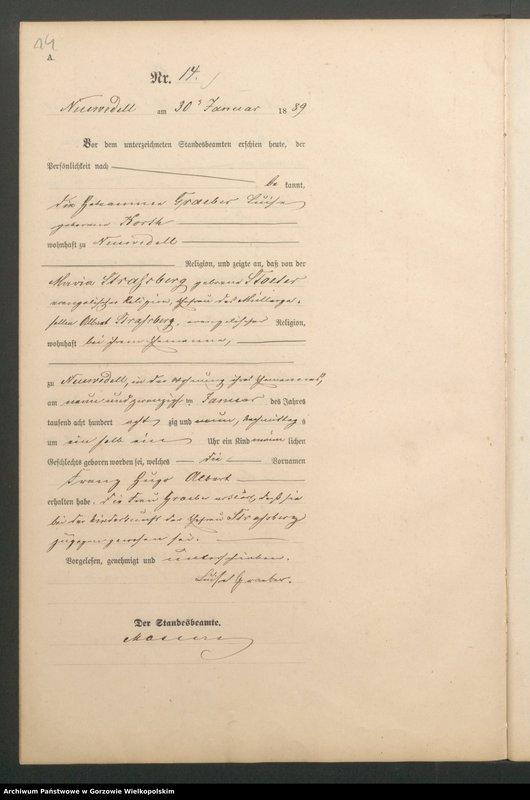 14
A.
Nr. 14.
Neuwedell am 30ᵗ Januar 1889
Vor dem unterzeichneten Standesbeamten erschien heute, der
Persönlichkeit nach
be kannt,
die Hebamme Graeber Luise
geborene Korth
wohnhaft zu Neuwedell
Religion, und zeigte an, daß von der
Maria Strahsberg geborene Stoeter
evangelischer Religion, Ehefrau des Müllerge-
sellen Albert Strahsberg, evangelischer Religion,
wohnhaft bei ihrem Ehemanne,
zu Neuwedell, in der Wohnung ihres Ehemannes,
am neun und zwanzigsten Januar des Jahres
tausend acht hundert acht zig und neun, Nachmittags
um ein halb ein Uhr ein Kind männ lichen
Geschlechts geboren worden sei, welches die Vornamen
Franz Hugo Albert
erhalten habe. Die Frau Graeber erklärt, daß sie
bei der Niederkunft der Ehefrau Strahsberg
zugegen gewesen sei.
Vorgelesen, genehmigt und unterschrieben.
Luise Graeber.
Der Standesbeamte.
Archiwum Państwowe w Gorzowie Wielkopolskim